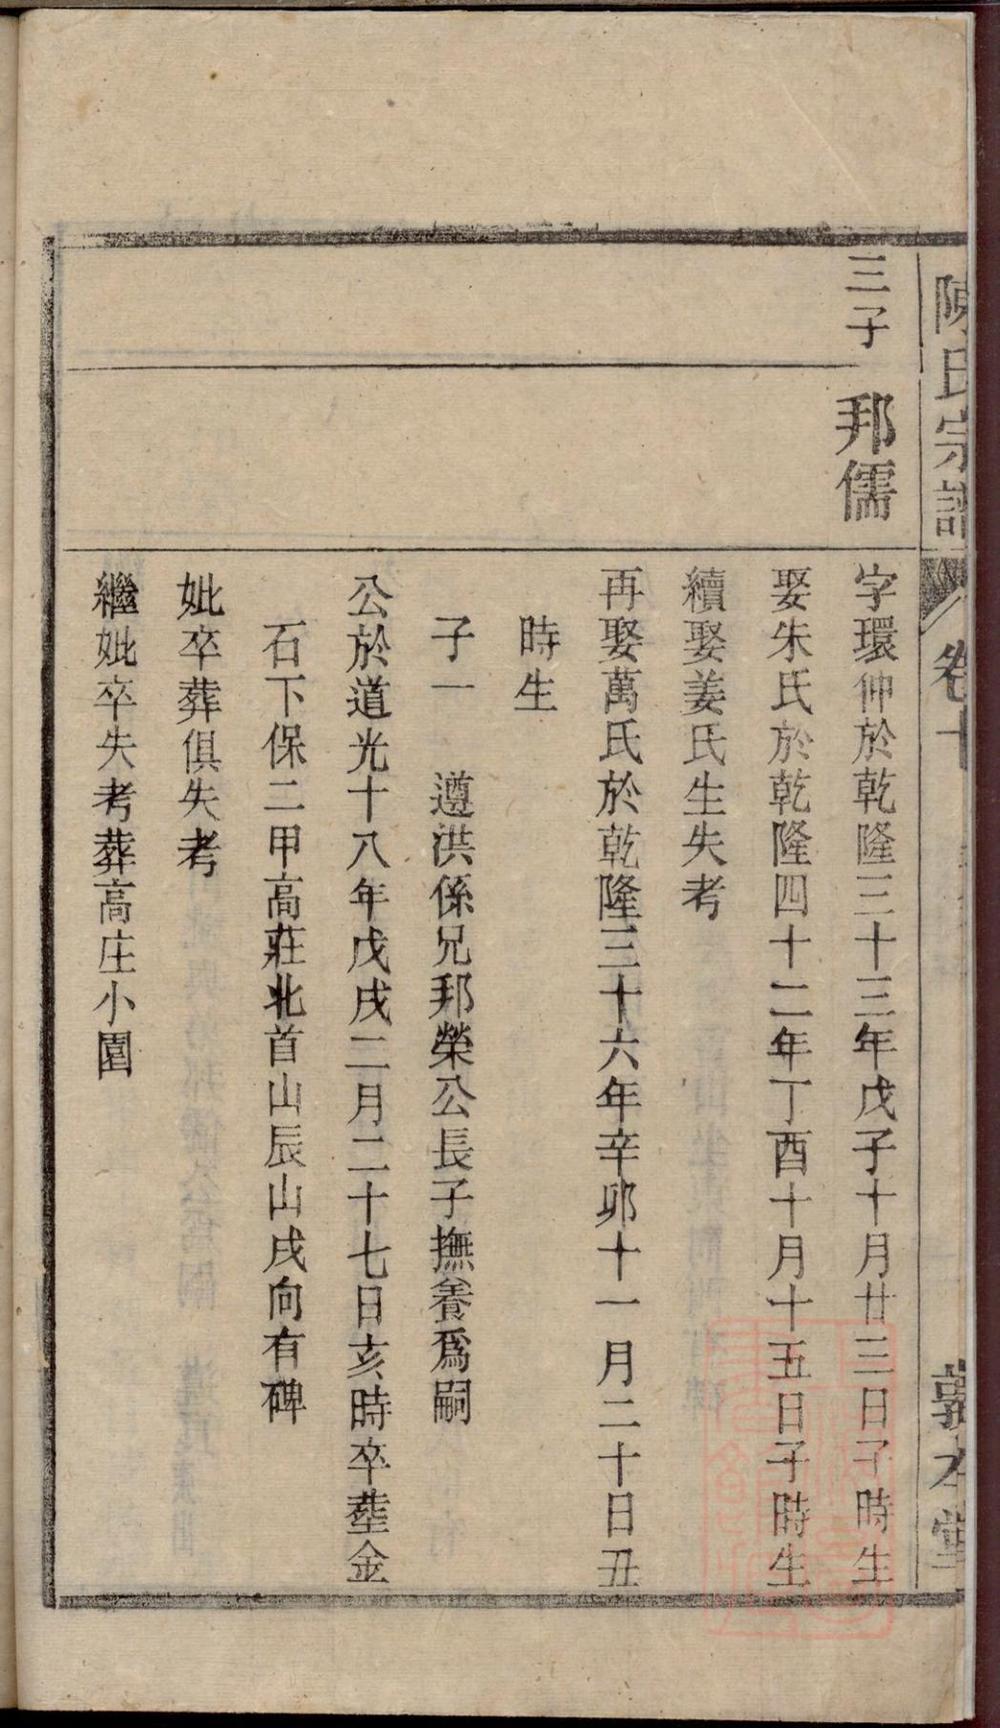 陳氏宗譜 卷十 敦本堂
三子
邦儒
字環仲於乾隆三十三年戊子十月廿三日子時生
娶朱氏於乾隆四十二年丁酉十月十五日子時生
續娶姜氏生失考
再娶萬氏於乾隆三十六年辛卯十一月二十日丑
時生
子一 遵洪係兄邦榮公長子撫養爲嗣
公於道光十八年戊戌二月二十七日亥時卒塟金
石下保二甲高莊北首山辰山戌向有碑
妣卒葬俱失考
繼妣卒失考葬高庄小園